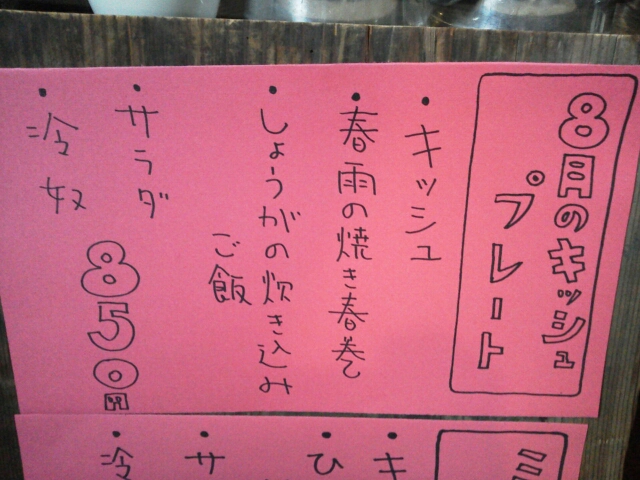 8月のキッシュ
プレート
・キッシュ
・春雨の焼き春巻
・しょうがの炊き込み
ご飯
・サラダ
・冷奴
850円
ミ
・キ
・ひ
・サ
・冷